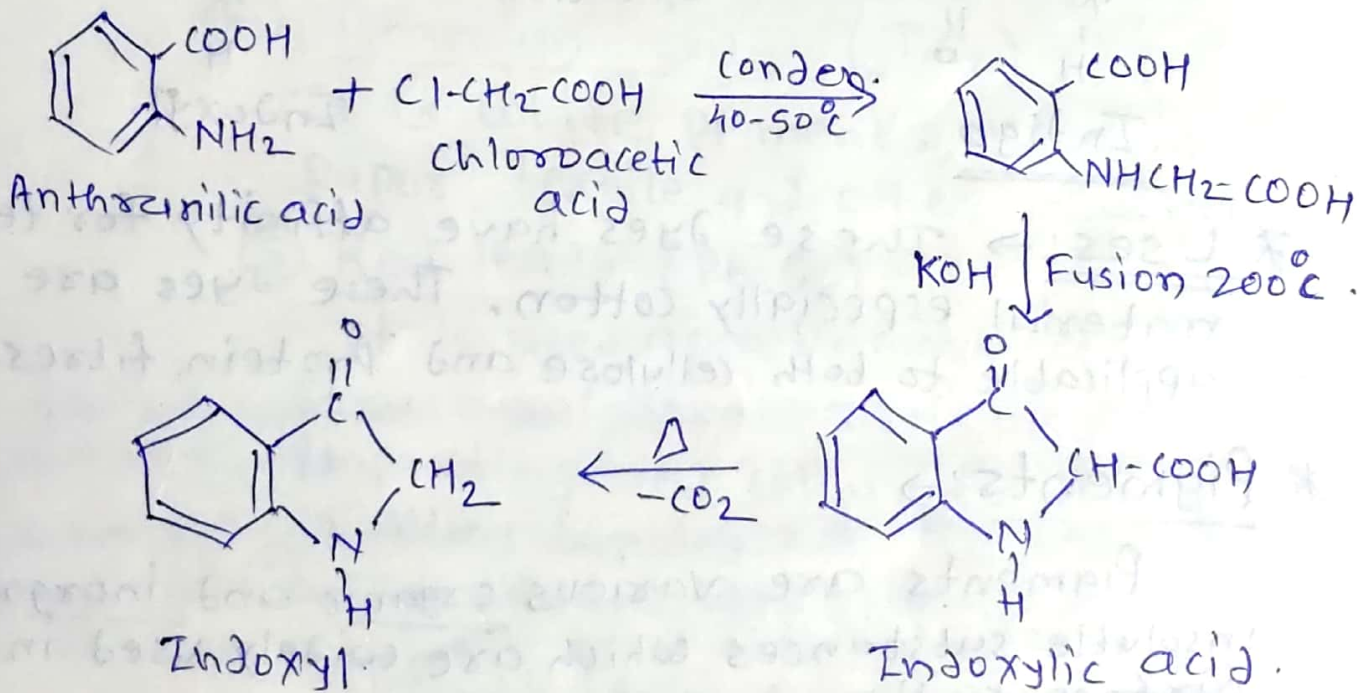 COOH
NH2
Anthranilic acid
+ Cl-CH2-COOH
Chloroacetic
acid
Conden.
40-50°C
COOH
NHCH2-COOH
KOH Fusion 200°C.
O
C
CH-COOH
N
H
Indoxylic acid.
Δ
-CO2
O
C
CH2
N
H
Indoxyl.